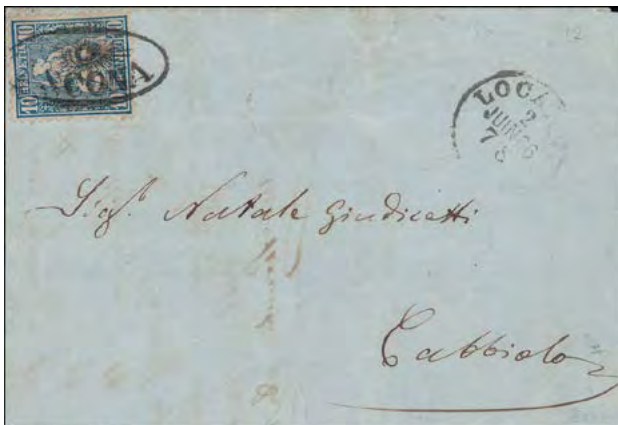 10 10
CONA
LOCA
2
JUIN
7
12
Sig.r Natale Giudicetti
Cabbiolo